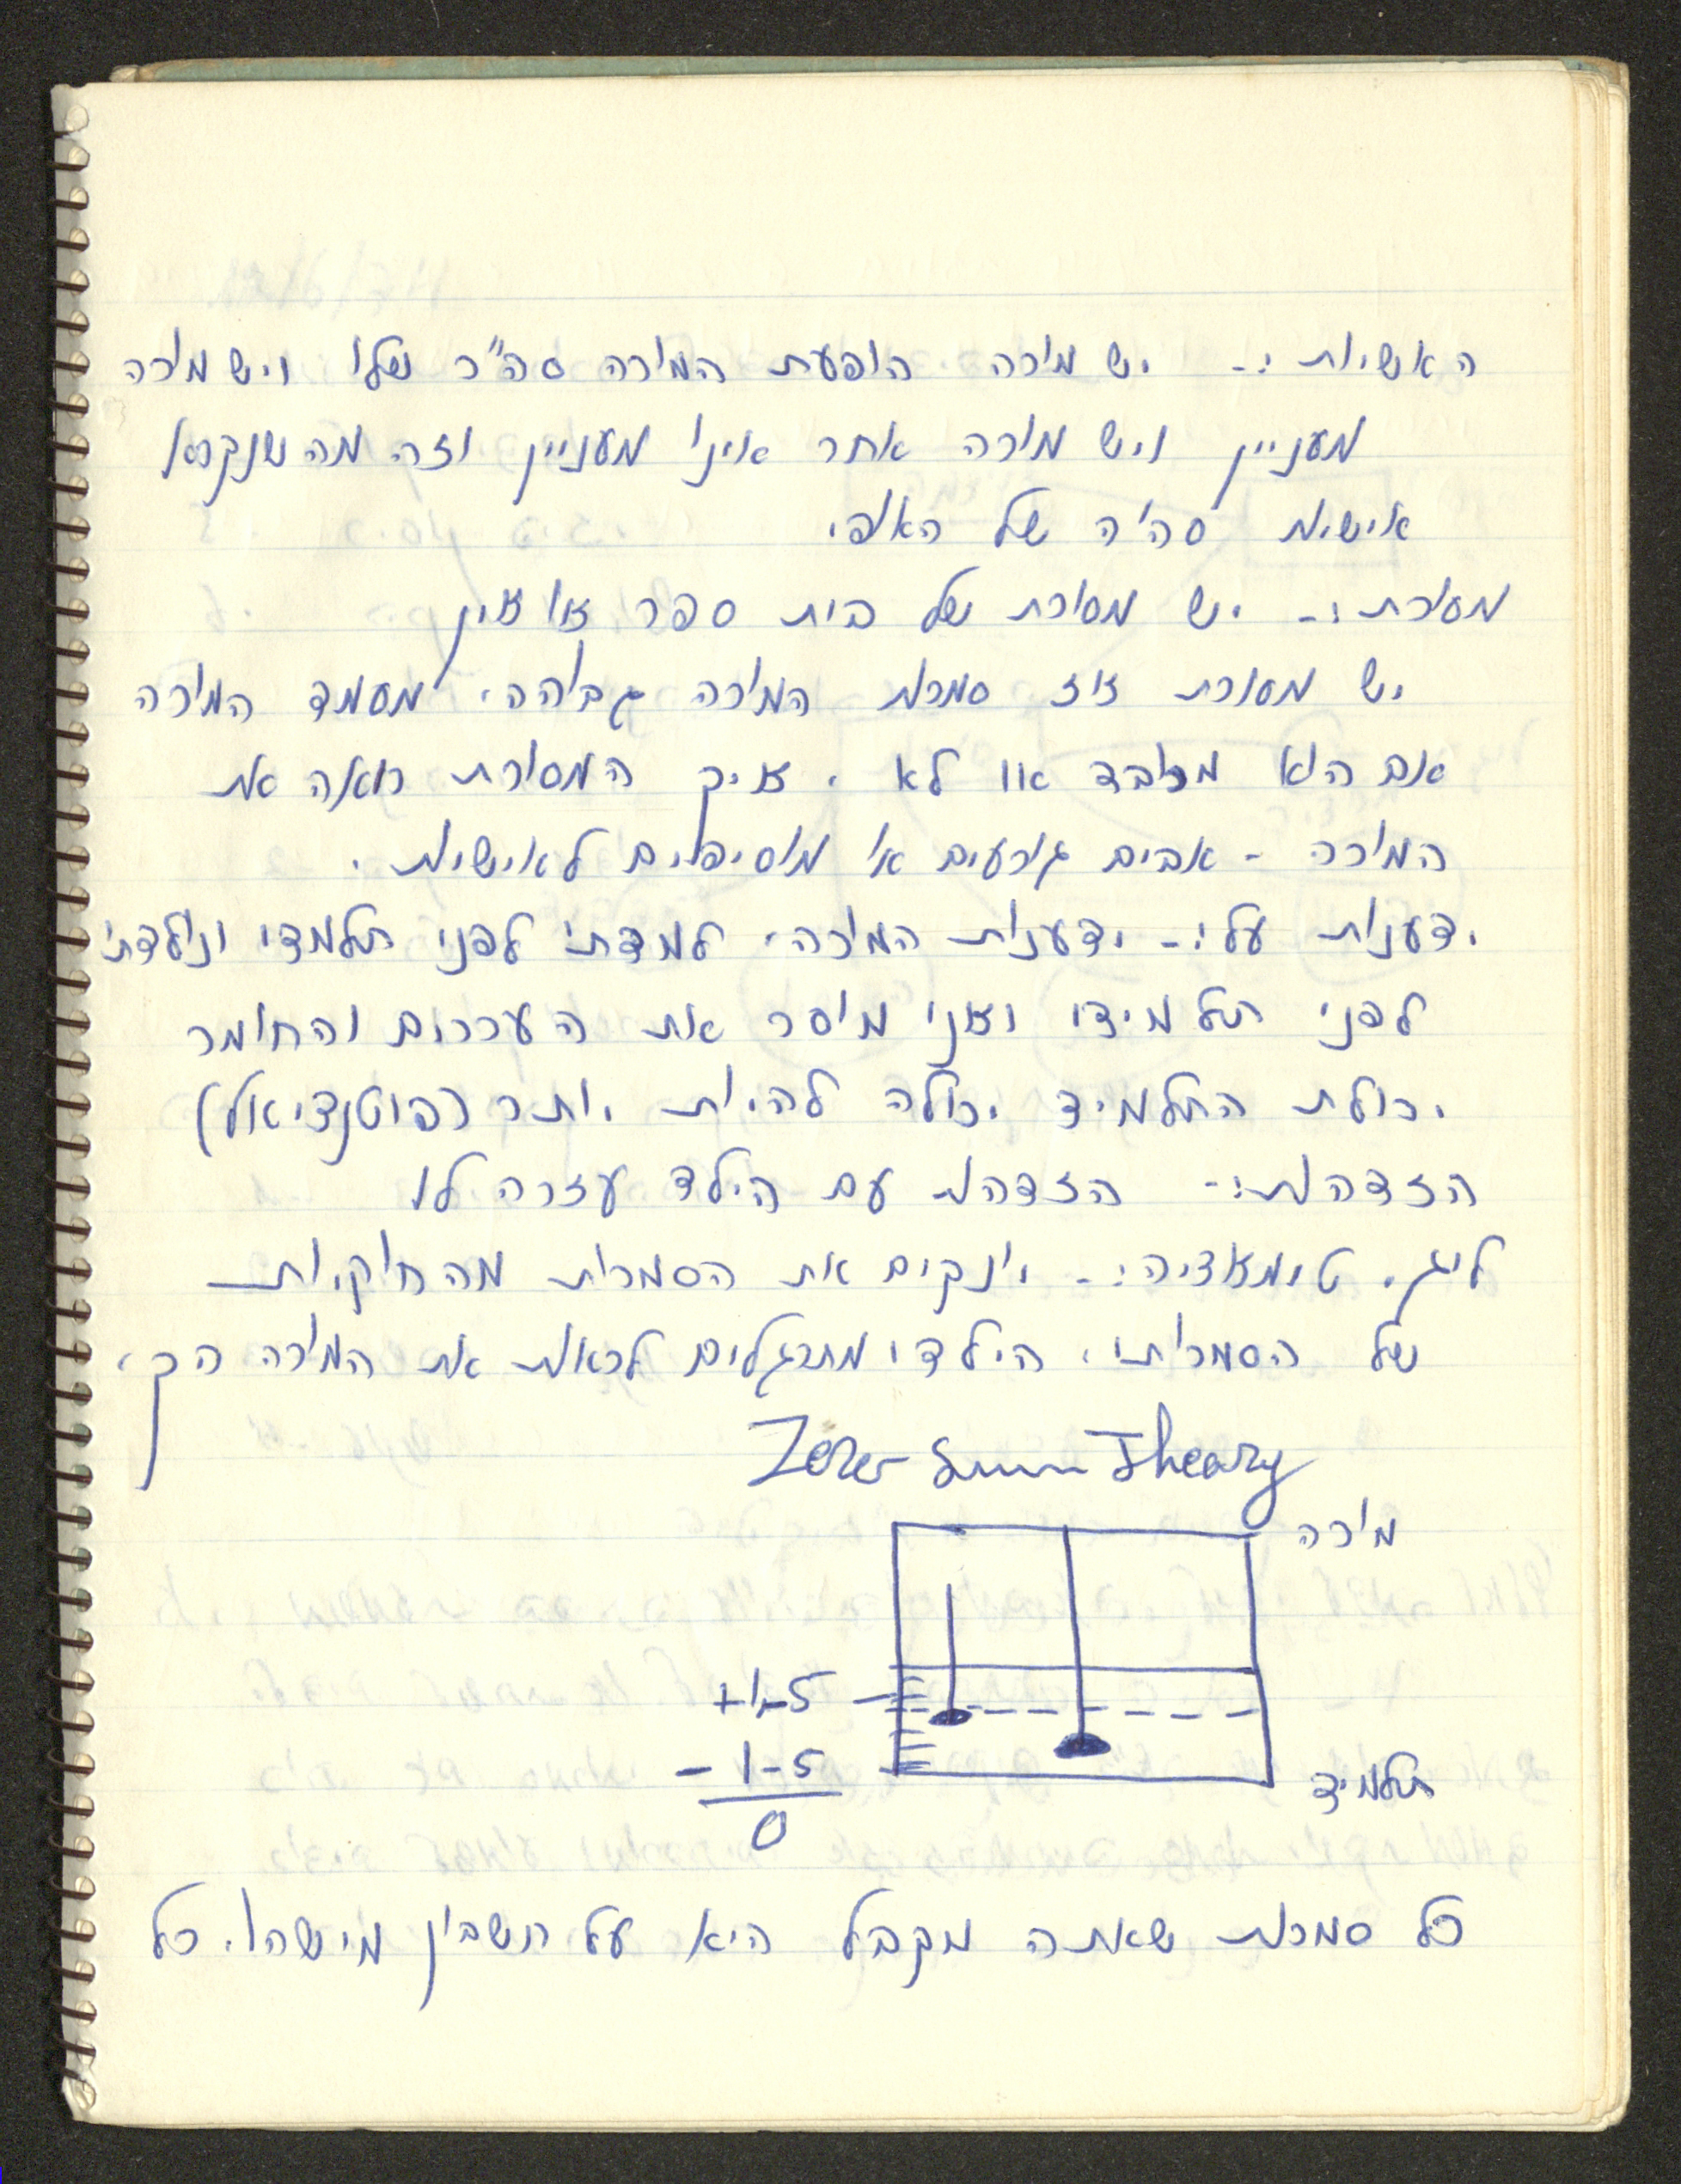 האשיות :- יש מורה הופעת המורה סה"כ שלו ויש מורה
מעניין ויש מורה אחר אינו מעניין וזה מה שנקרא
אישית סה'ה של האופי
מסורת :- יש מסורת של בית ספר או אין
יש מסורת אז סמכות המורה גבוהה, מעמד המורה
אם הוא מכובד או לא . איך המסורת רואה את
המורה - אבים גורעים או מוסיפים לאישית .
ידענות על :- ידענות המורה, למדתי לפני תלמדי ונולדתי
לפני תלמידי ואני מוסר את הערכים והחומר
יכולת התלמיד יכולה להיות יותר (פוטנציאל)
הזדהות :- הזדהות עם הילד עזרה לו
ליגיטימאציה :- יונקים את הסמכות מהחוקיות
של הסמכותי, הילדי מתרגלים לראות את המורה הק,
Zero Sum Theory
מורה
+1-5
-1-5
0
תלמיד
כל סמכות שאתה מקבל היא על חשבון מישהו. כל